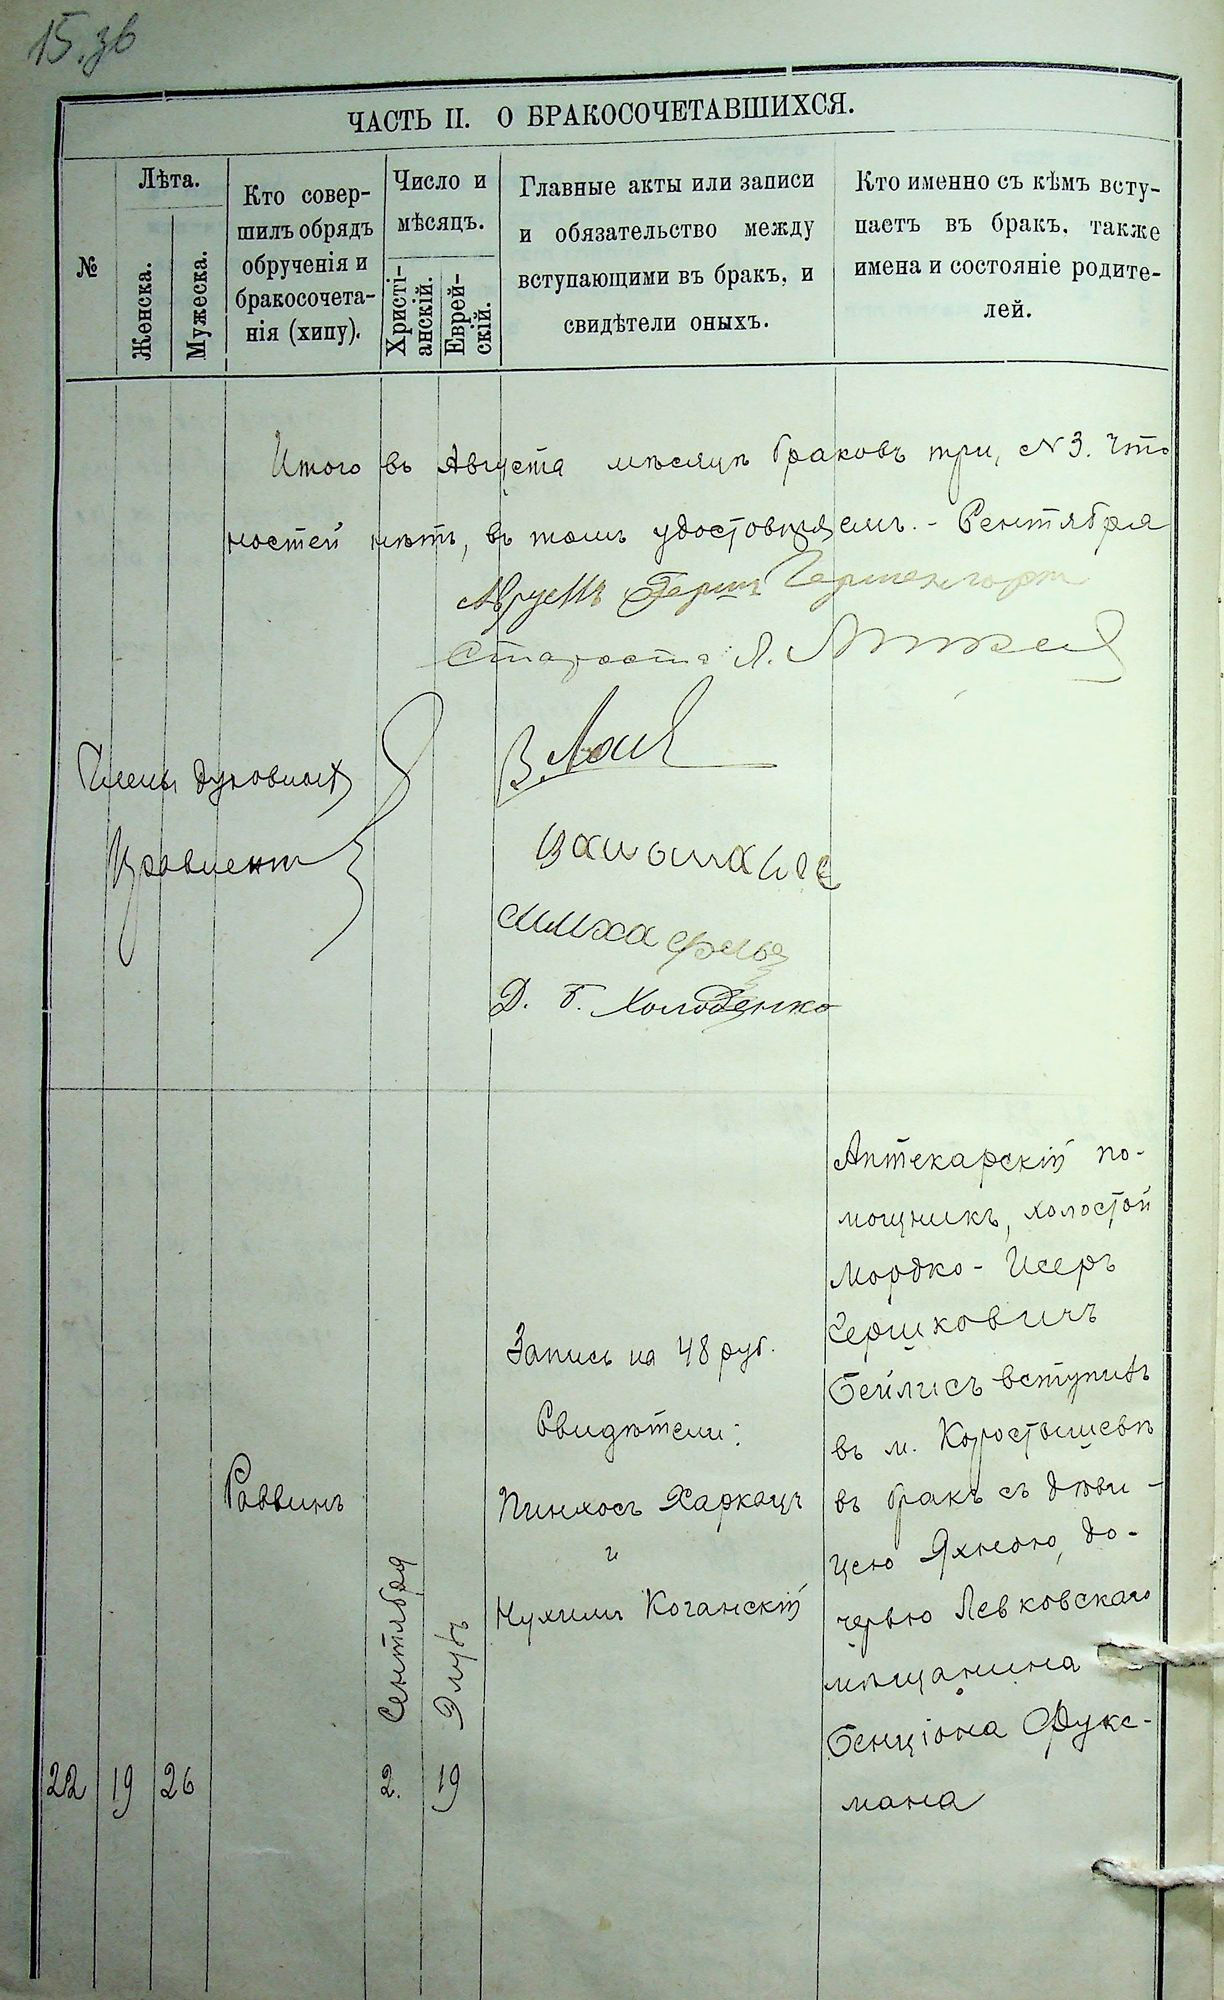 15. зв
ЧАСТЬ II. О БРАКОСОЧЕТАВШИХСЯ.
№
Лѣта.
Женска.
Мужеска.
Кто совер-
шилъ обрядъ
обрученія и
бракосочета-
нія (хипу).
Число и
мѣсяцъ.
Христі-
анскій.
Еврей-
скій.
Главные акты или записи
и обязательство между
вступающими въ бракъ, и
свидѣтели оныхъ.
Кто именно съ кѣмъ всту-
паетъ въ бракъ, также
имена и состояніе родите-
лей.
Итого въ Августа мѣсяцѣ браковъ три, № 3.
ностей нѣтъ, въ томъ удостовѣряемъ. - Сентября
Староста
Члены духовнаго
Правленія
Д. Б. Холоденко
22
19
26
Раввинъ
2. Сентября
19 Элулъ
Запись на 48 руб.
Свидѣтели:
Пинхосъ Харкацъ
и
Нухимъ Коганскій
Аптекарскій по-
мощникъ, холостой
Мордко-Исеръ
Гершковичъ
Бейлисъ вступилъ
въ м. Коростышевѣ
въ бракъ съ дѣви-
цею Яхною, до-
черью Левковскаго
мѣщанина
Бенціона Фукс-
мана